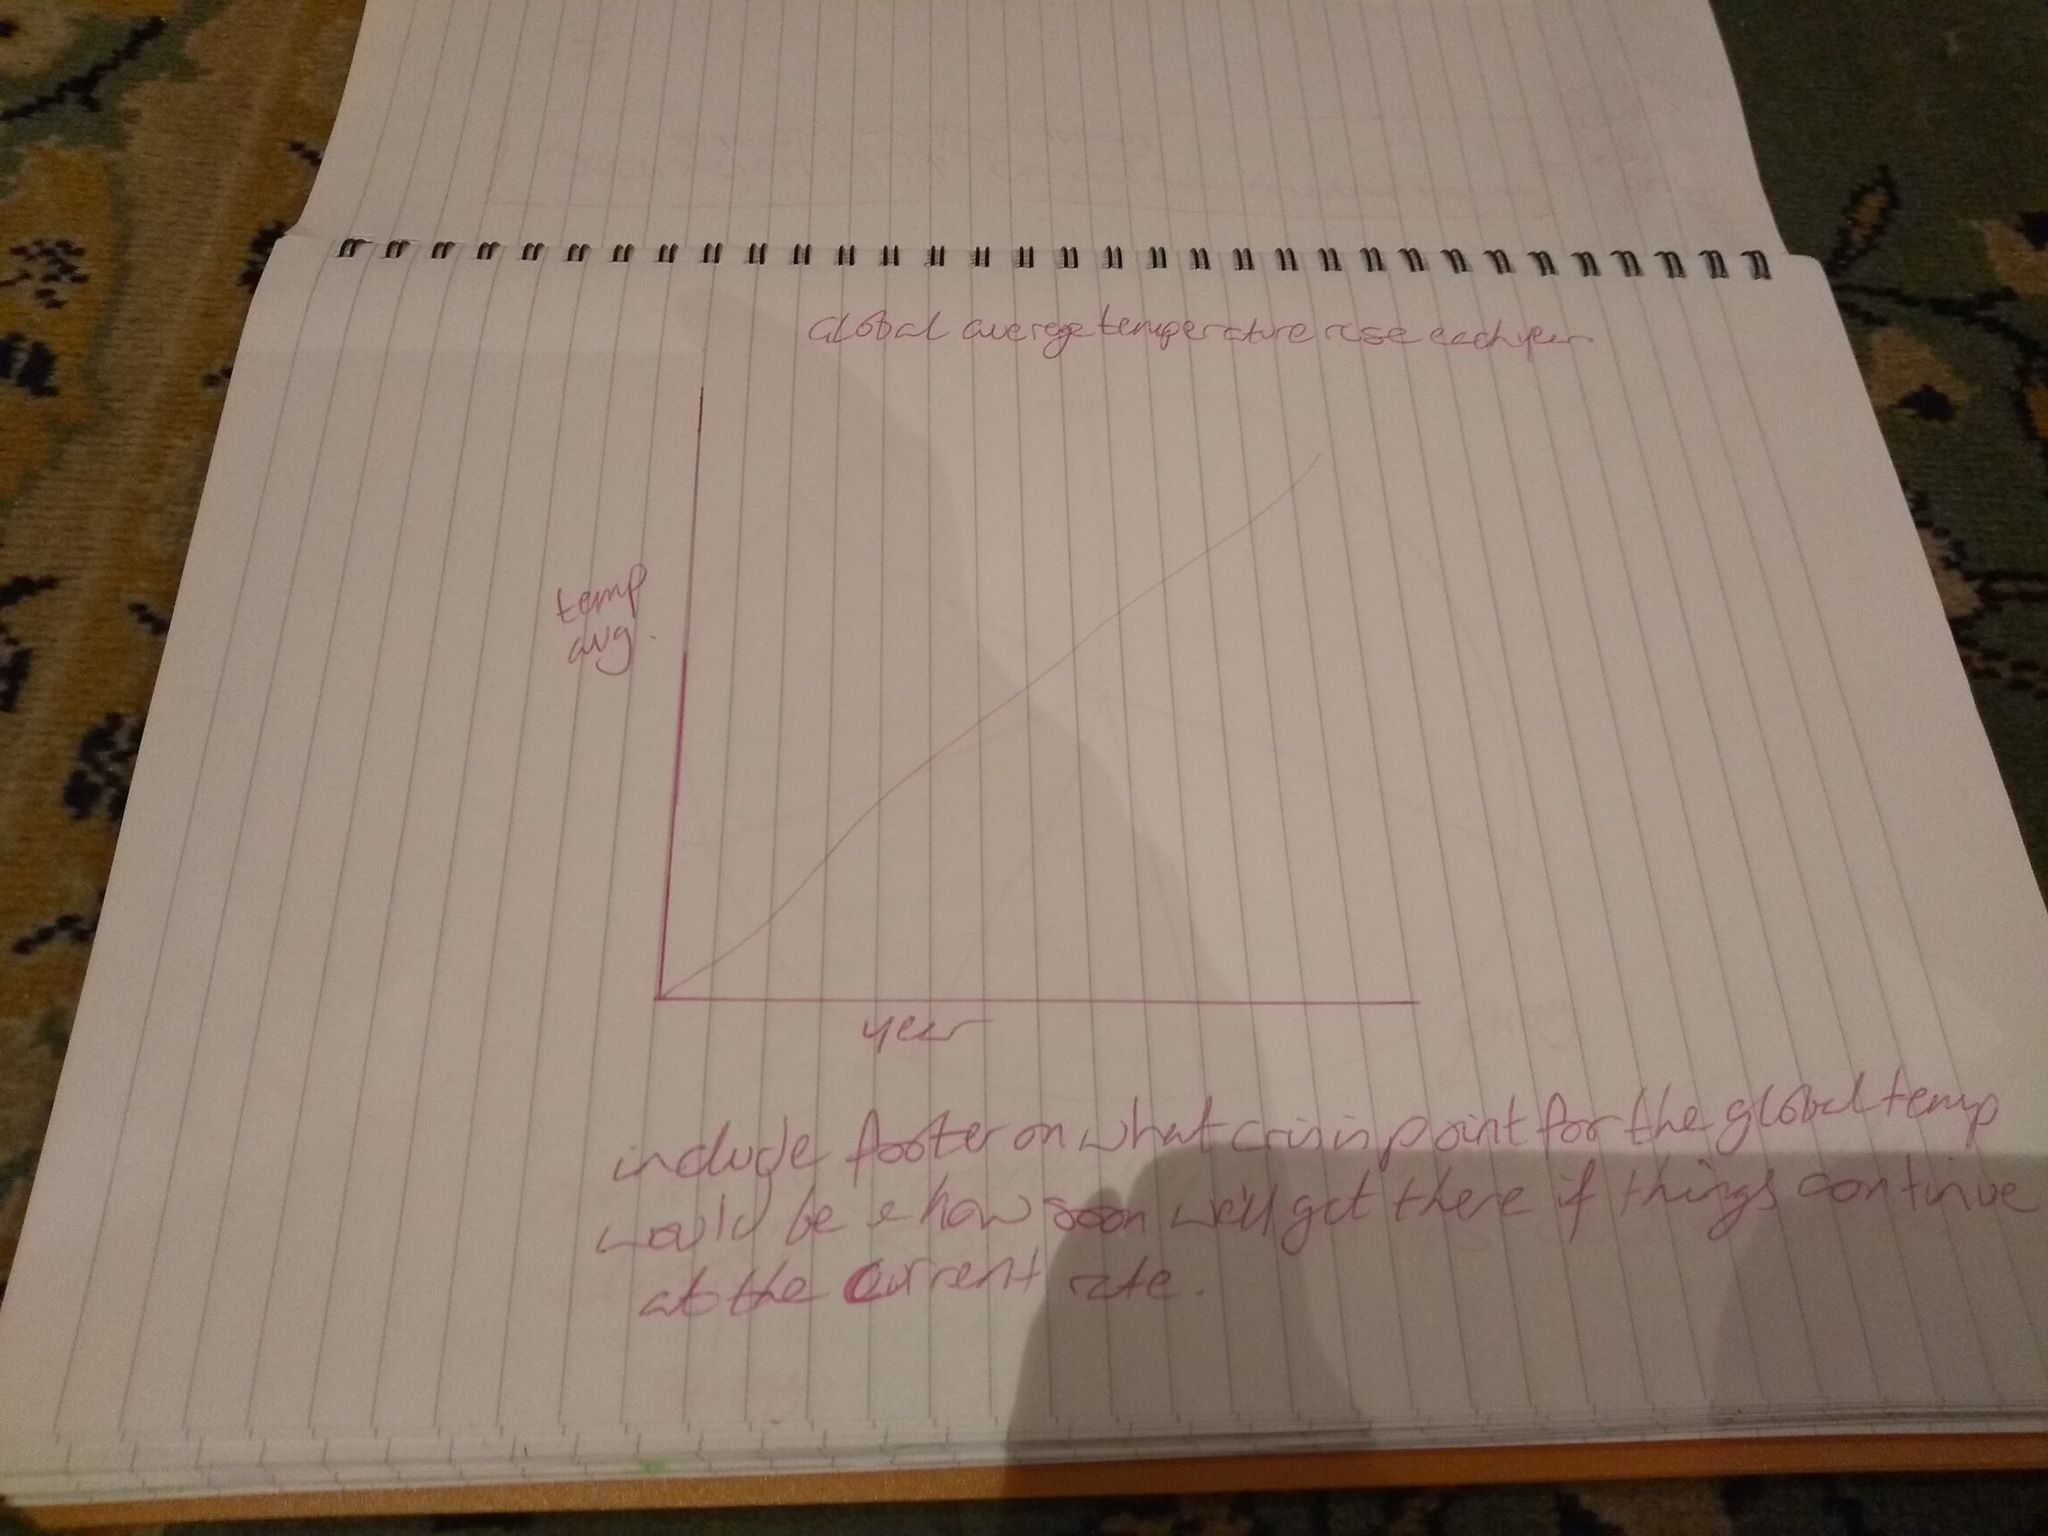 Global average temperature rise each year
temp
avg.
year
include footer on what crisis point for the global temp
would be & how soon we'll get there if things continue
at the current rate.